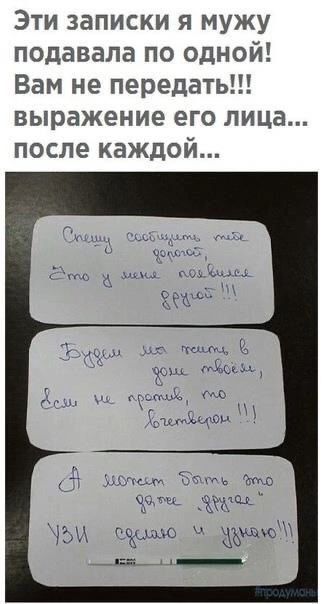 Эти записки я мужу
подавала по одной!
Вам не передать!!!
выражение его лица...
после каждой...
Спешу сообщить тебе
дорогой,
Что у меня появился
другой!!!
Будем мы жить в
доме твоём,
Если не против, то
вчетвером!!!
А может быть это
даже "другая"
УЗИ сделаю и узнаю!!!
#продумань